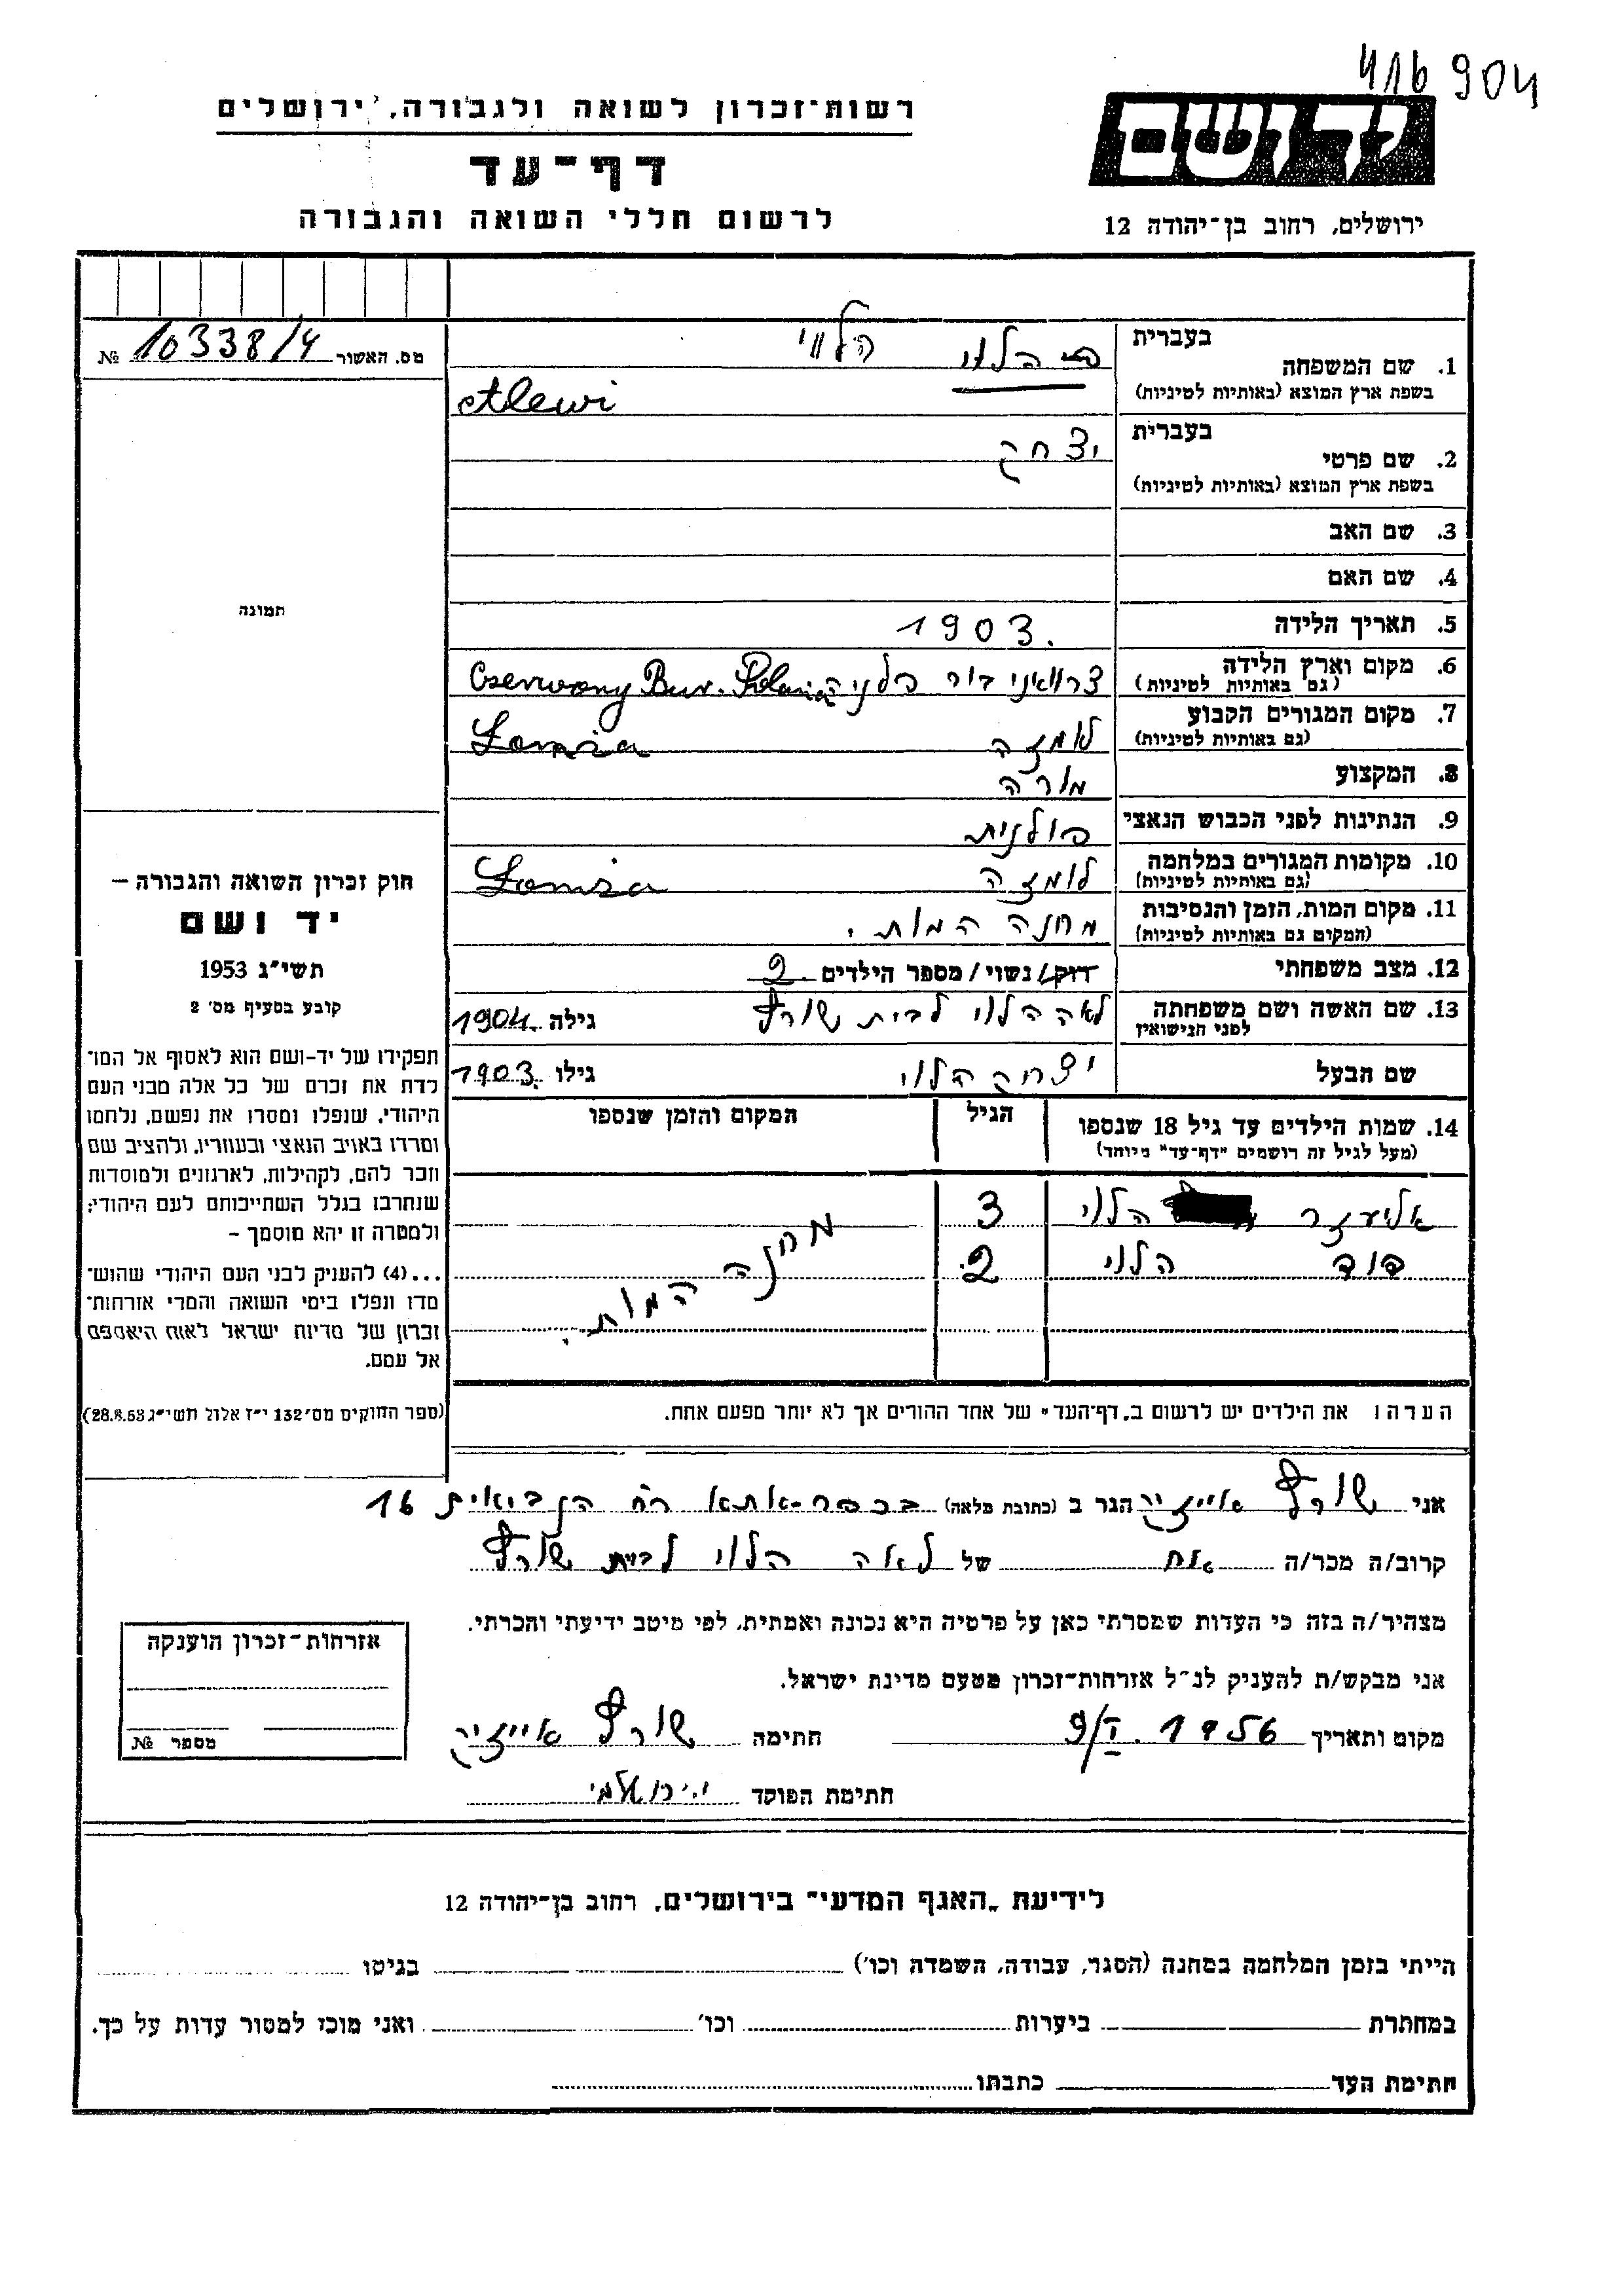 416904
רשות־זכרון לשואה ולגבורה, ירושלים
דף־עד
לרשום חללי השואה והגבורה
יד ושם
ירושלים, רחוב בן־יהודה 12
מס. האשור 10338/4 №
בעברית
1. שם המשפחה הלוי הלווי
בשפת ארץ המוצא (באותיות לטיניות) Alewi
בעברית
2. שם פרטי יצחק
בשפת ארץ המוצא (באותיות לטיניות)
3. שם האב
4. שם האם
5. תאריך הלידה 1903.
6. מקום וארץ הלידה
(גם באותיות לטיניות) בור Czerwony Bur. Polania
7. מקום המגורים הקבוע לומזה Lomża
(גם באותיות לטיניות)
8. המקצוע מורה
9. הנתינות לפני הכבוש הנאצי פולנית
10. מקומות המגורים במלחמה לומזה Lomża
(גם באותיות לטיניות)
11. מקום המות, הזמן והנסיבות מחנה המות.
(המקום גם באותיות לטיניות)
12. מצב משפחתי רווק/ נשוי/ מספר הילדים 2
13. שם האשה ושם משפחתה לאה הלוי לבית שורץ גילה 1904
לפני הנישואין
שם הבעל יצחק הלוי גילו 1903.
14. שמות הילדים עד גיל 18 שנספו הגיל המקום והזמן שנספו
(מעל לגיל זה רושמים "דף־עד" מיוחד)
אליעזר הלוי 3
דוד הלוי 2
מחנה המות.
הערה: את הילדים יש לרשום ב„דף־העד" של אחד ההורים אך לא יותר מפעם אחת.
תמונה
חוק זכרון השואה והגבורה –
יד ושם
תשי"ג 1953
קובע בסעיף מס' 2
תפקידו של יד-ושם הוא לאסוף אל המו־
לדת את זכרם של כל אלה מבני העם
היהודי, שנפלו ומסרו את נפשם, נלחמו
ומרדו באויב הנאצי ובעוזריו, ולהציב שם
וזכר להם, לקהילות, לארגונים ולמוסדות
שנחרבו בגלל השתייכותם לעם היהודי;
ולמטרה זו יהא מוסמך –
...(4) להעניק לבני העם היהודי שהוש־
מדו ונפלו בימי השואה והמרי אזרחות־
זכרון של מדינת ישראל לאות היאספם
אל עמם.
(ספר החוקים מס' 132 י"ז אלול תשי"ג 28.8.53)
אני שורץ אייזיק הגר ב (כתובת מלאה) בכפר-אתא רח 16
קרוב/ה מכר/ה אח של לאה הלוי לבית שורץ
מצהיר/ה בזה כי העדות שמסרתי כאן על פרטיה היא נכונה ואמתית, לפי מיטב ידיעתי והכרתי.
אני מבקש/ת להעניק לנ"ל אזרחות־זכרון מטעם מדינת ישראל.
מקום ותאריך 9/I. 1956 חתימה שורץ אייזיק
חתימת הפוקד י. ירושלמי
אזרחות־זכרון הוענקה
מספר №
לידיעת „האגף המדעי" בירושלים, רחוב בן־יהודה 12
הייתי בזמן המלחמה במחנה (הסגר, עבודה, השמדה וכו') בגיטו
במחתרת ביערות וכו' ואני מוכן למסור עדות על כך.
חתימת העד כתבתו